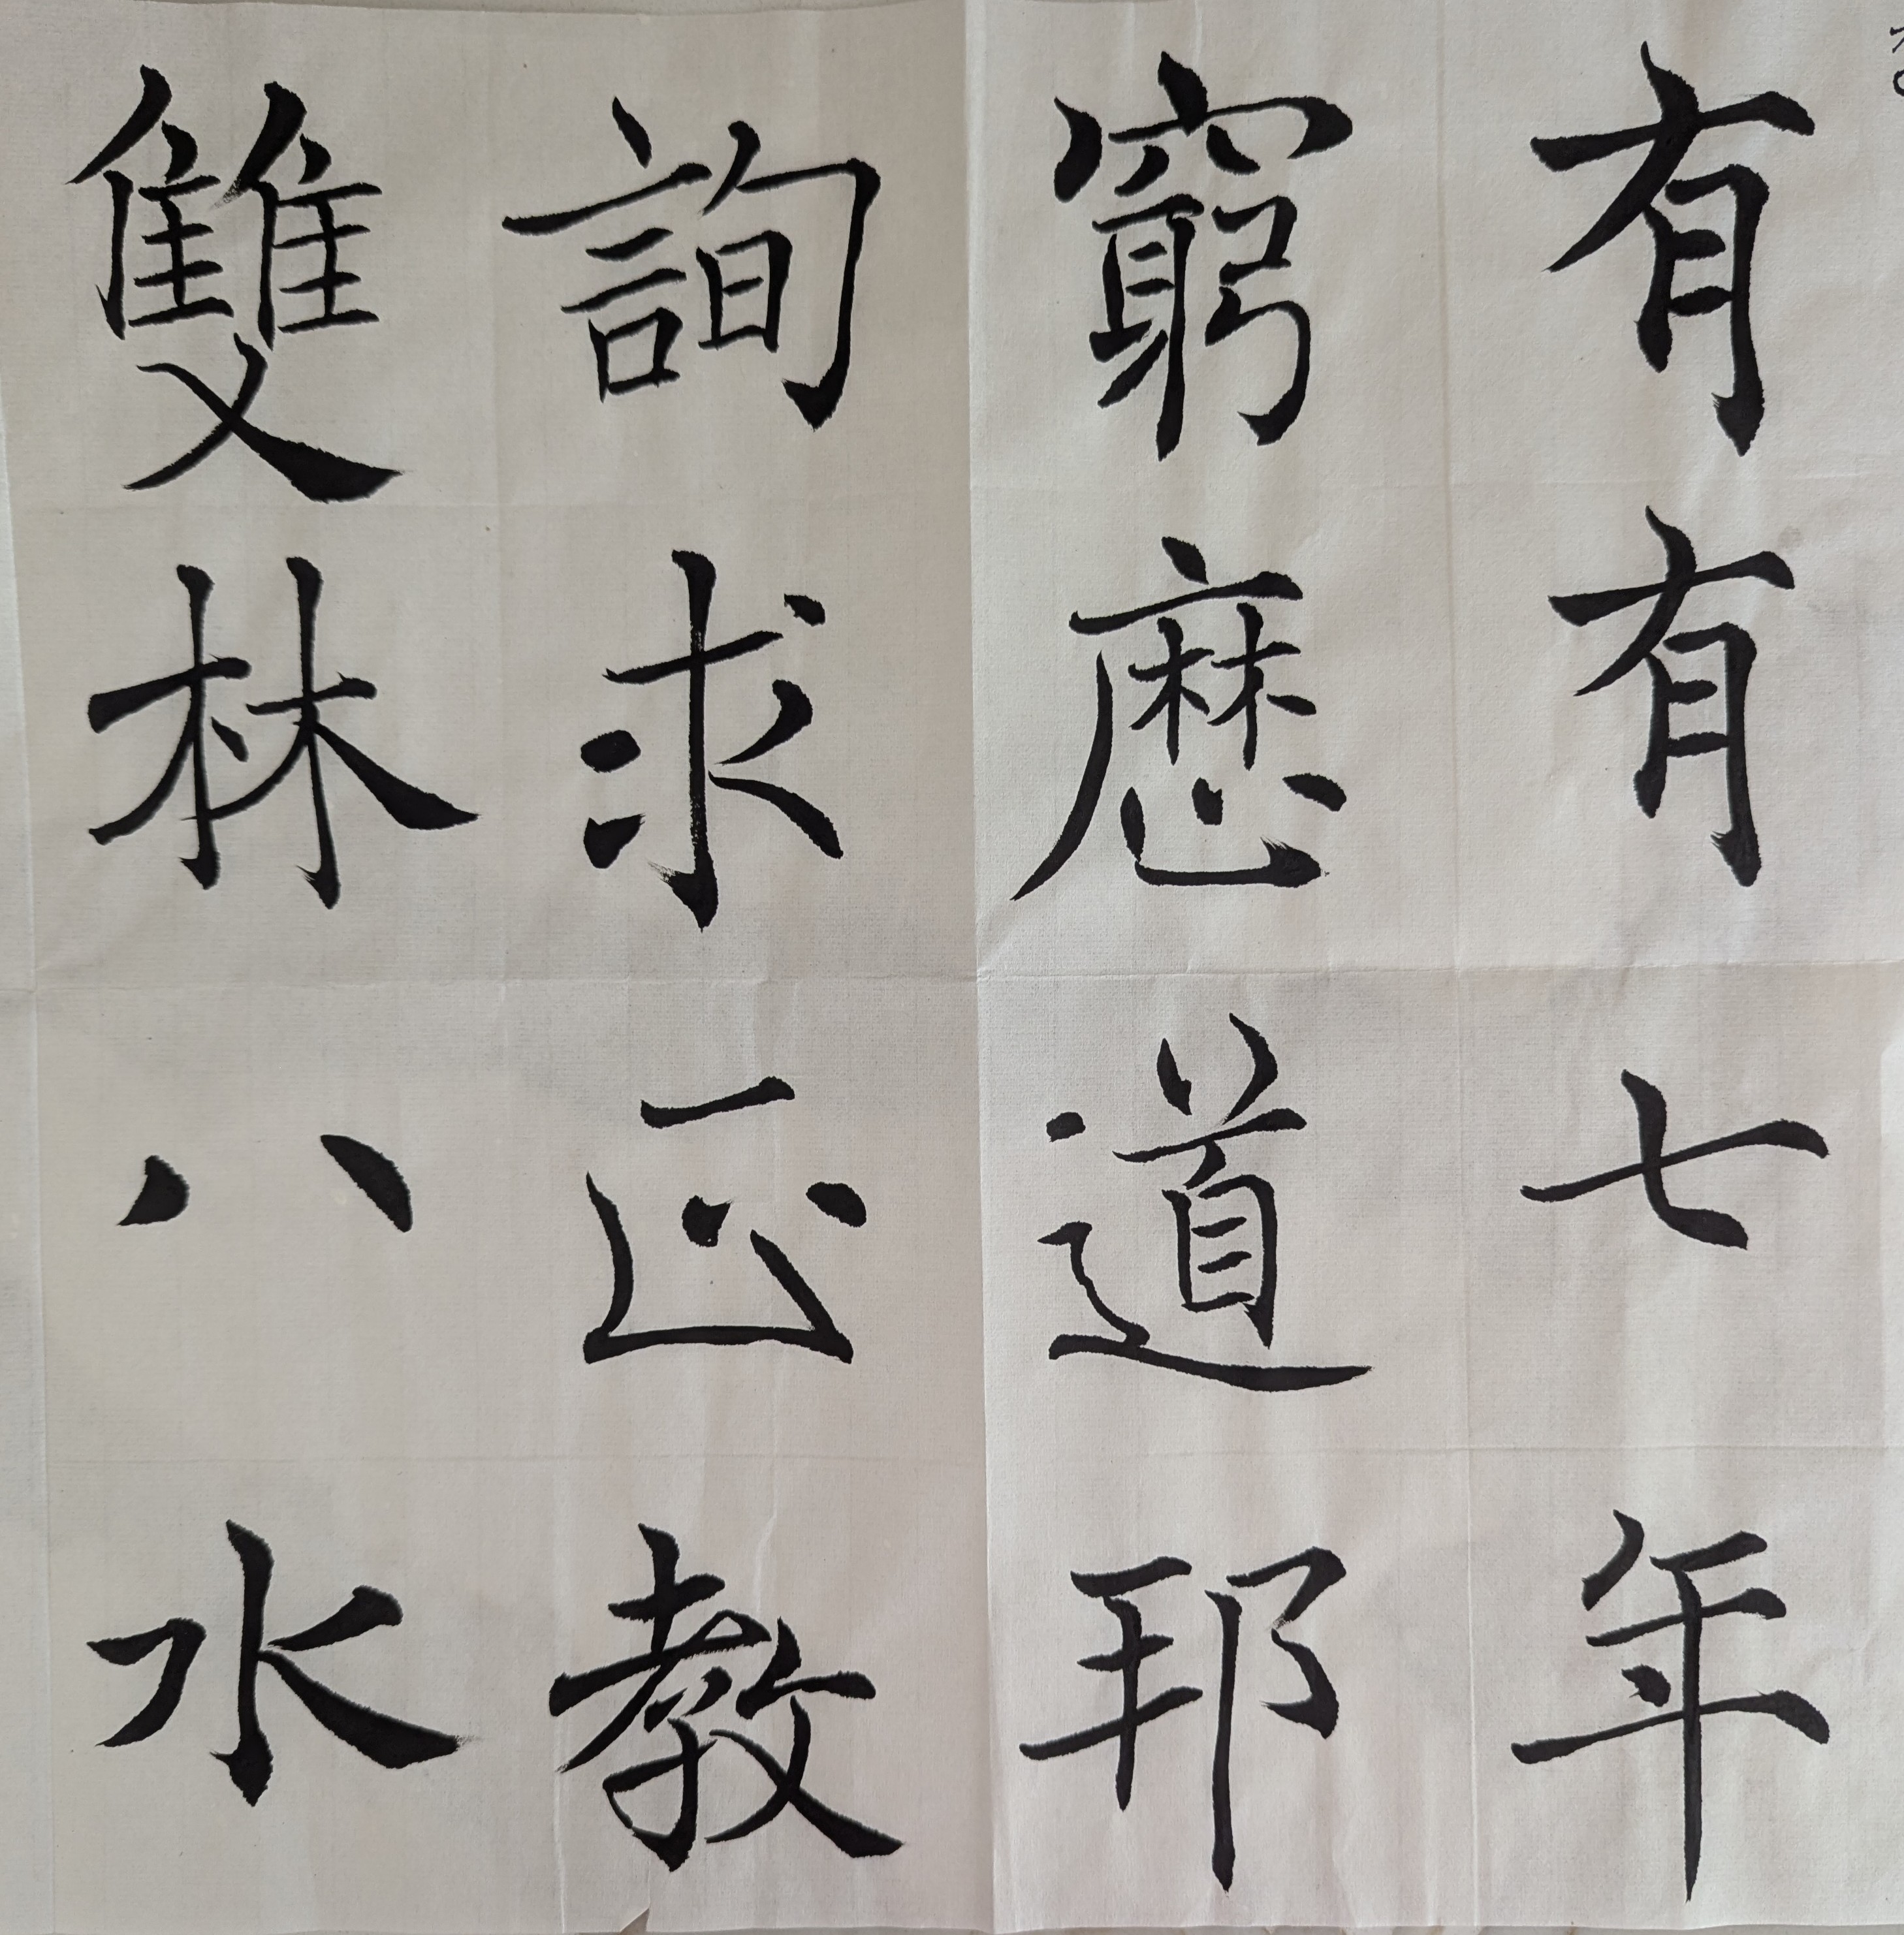 有有七年
窮歷道邦
詢求正教
雙林八水